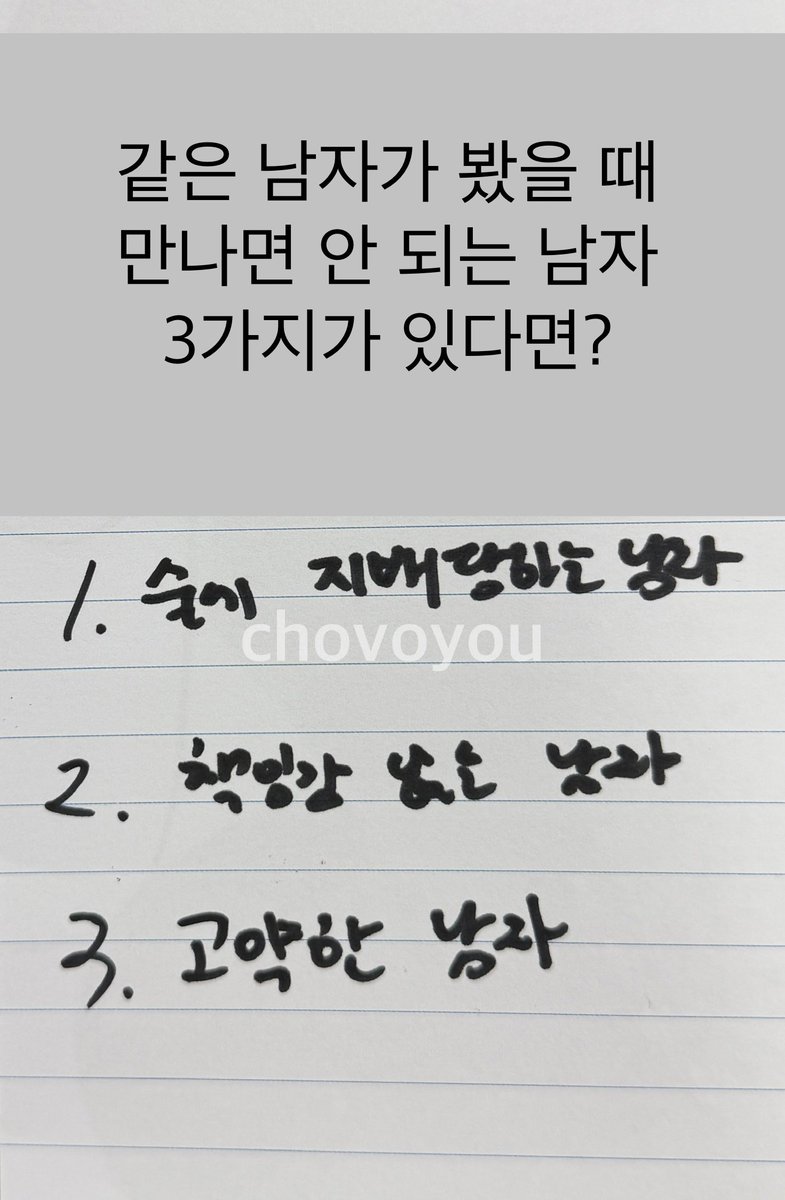 같은 남자가 봤을 때
만나면 안 되는 남자
3가지가 있다면?
1. 술에 지배당하는 남자
chovoyou
2. 책임감 없는 남자
3. 고약한 남자